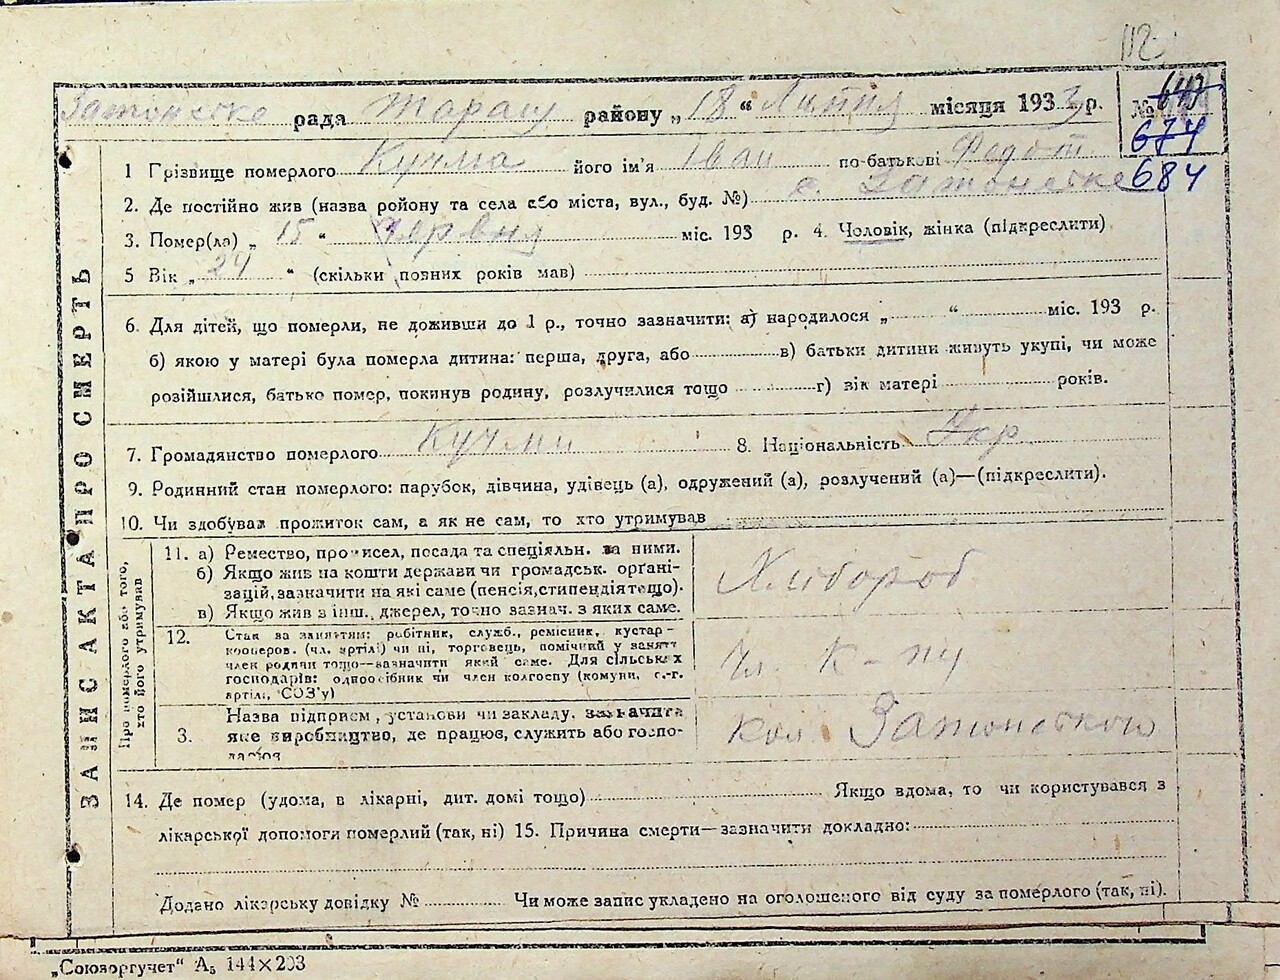 112
Затонське рада Тараш району „18“ Липня місяця 1933 р. № 647
674
684
1 Грізвище померлого Кучма його ім'я Іван по-батькові Федот.
2. Де постійно жив (назва району та села або міста, вул., буд. №) с. Затонське
3. Помер(ла) „15“ Червня міс. 193 р. 4. Чоловік, жінка (підкреслити)
5 Вік „24“ (скільки повних років мав)
6. Для дітей, що померли, не доживши до 1 р., точно зазначити: а) народилося „ “ міс. 193 р.
б) якою у матері була померла дитина: перша, друга, або в) батьки дитини живуть укупі, чи може
розійшлися, батько помер, покинув родину, розлучилися тощо г) вік матері років.
7. Громадянство померлого Кучми 8. Національність Укр
9. Родинний стан померлого: парубок, дівчина, удівець (а), одружений (а), розлучений (а)—(підкреслити).
10. Чи здобував прожиток сам, а як не сам, то хто утримував
ЗАПИС АКТА ПРО СМЕРТЬ
Про померлого або того,
хто його утримував
11. а) Ремество, промисел, посада та спеціяльн. за ними.
б) Якщо жив на кошти держави чи громадськ. орґані-
зацій, зазначити на які саме (пенсія, стипендія тощо).
в) Якщо жив з інш. джерел, точно зазнач. з яких саме.
Хлібороб
12. Стан за заняттям: робітник, служб., ремісник, кустар-
кооперов. (чл. артілі) чи ні, торговець, помічний у занятт
член родини тощо—зазначити який саме. Для сільських
господарів: одноосібник чи член колгоспу (комуни, с.-г.
артілі, СОЗ'у)
Чл. к-пу
3. Назва підприєм., установи чи закладу, зазначити
яке виробництво, де працює, служить або госпо-
дарює
Кол Затонською
14. Де помер (удома, в лікарні, дит. домі тощо) Якщо вдома, то чи користувався з
лікарської допомоги померлий (так, ні) 15. Причина смерти—зазначити докладно:
Додано лікарську довідку № Чи може запис укладено на оголошеного від суду за померлого (так, ні).
„Союзоргучет“ А₅ 144×203